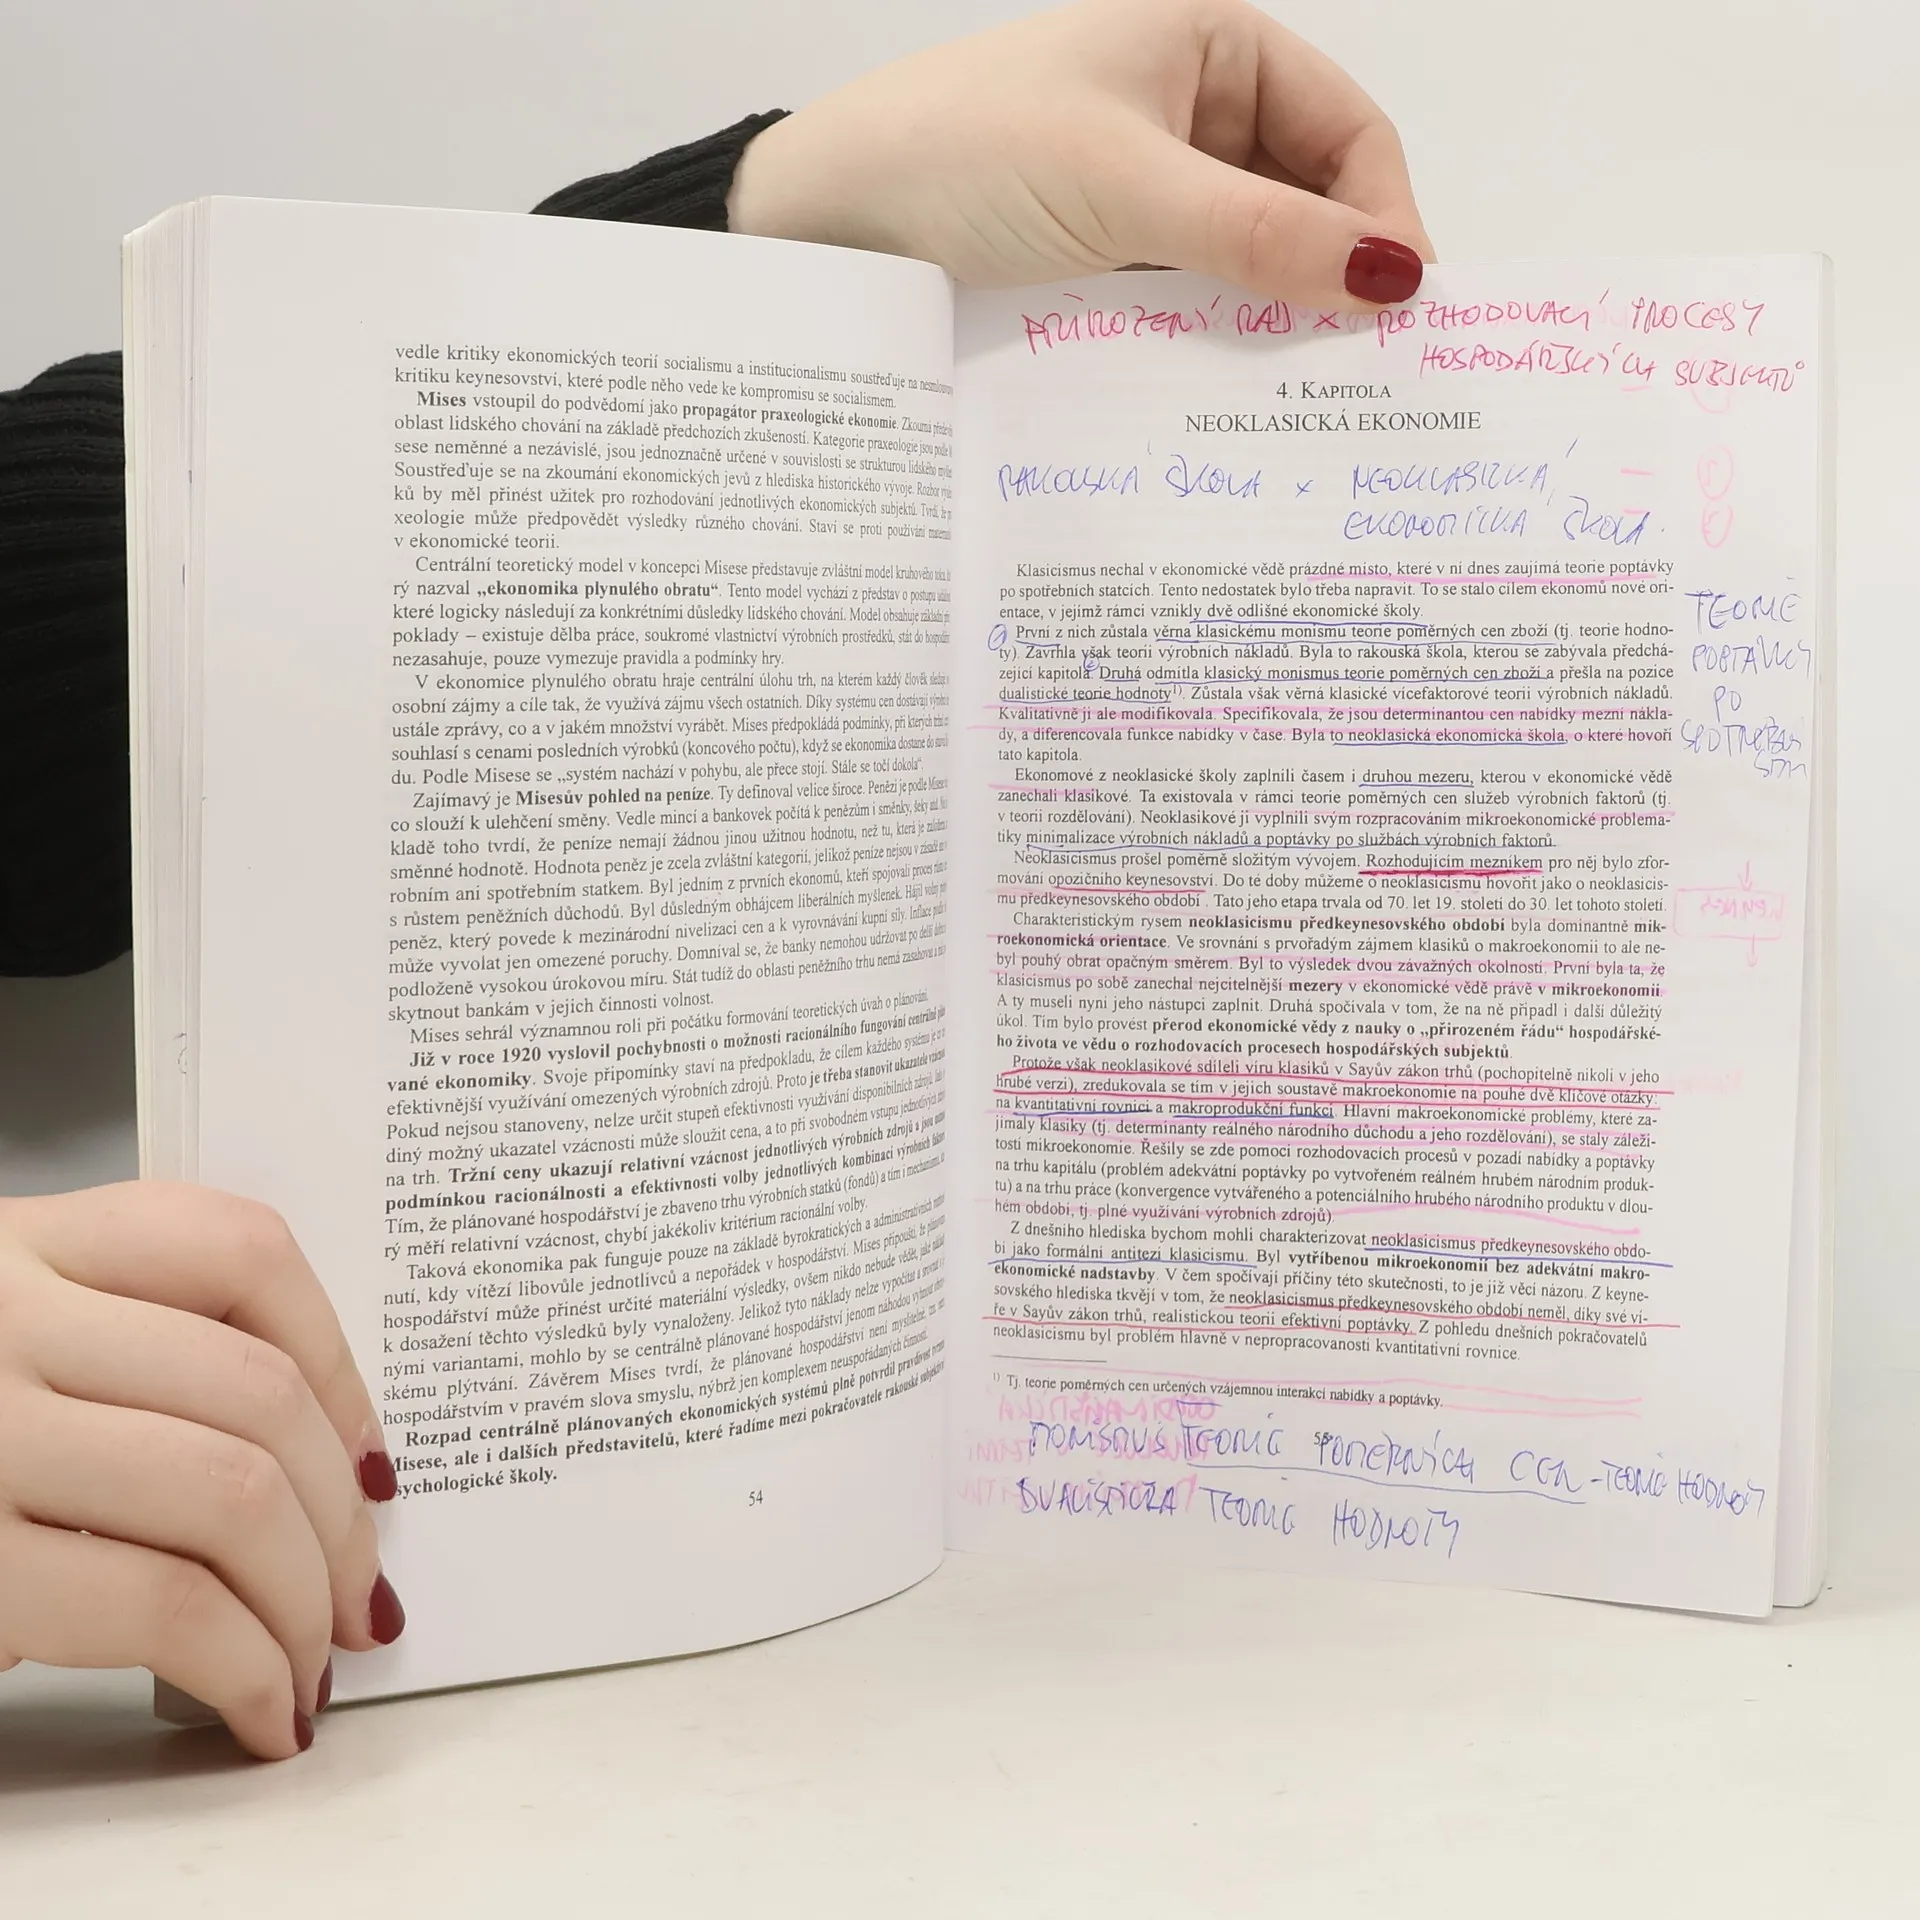 vedle kritiky ekonomických teorií socialismu a institucionalismu soustřeďuje na
kritiku keynesovství, které podle něho vede ke kompromisu se socialismem.
Mises vstoupil do podvědomí jako propagátor praxeologické ekonomie. Zkoumá
oblast lidského chování na základě předchozích zkušeností. Kategorie praxeologie jsou podle
sese neměnné a nezávislé, jsou jednoznačně určené v souvislosti se strukturou lidského
Soustřeďuje se na zkoumání ekonomických jevů z hlediska historického vývoje. Rozbor
ků by měl přinést užitek pro rozhodování jednotlivých ekonomických subjektů. Tvrdí, že
xeologie může předpovědět výsledky různého chování. Staví se proti používání
v ekonomické teorii.
Centrální teoretický model v koncepci Misese představuje zvláštní model kruhového
rý nazval „ekonomika plynulého obratu“. Tento model vychází z představ o postupu
které logicky následují za konkrétními důsledky lidského chování. Model obsahuje
poklady – existuje dělba práce, soukromé vlastnictví výrobních prostředků, stát do
nezasahuje, pouze vymezuje pravidla a podmínky hry.
V ekonomice plynulého obratu hraje centrální úlohu trh, na kterém každý člověk
osobní zájmy a cíle tak, že využívá zájmu všech ostatních. Díky systému cen dostávají
ustále zprávy, co a v jakém množství vyrábět. Mises předpokládá podmínky, při kterých
souhlasí s cenami posledních výrobků (koncového počtu), když se ekonomika dostane do
du. Podle Misese se „systém nachází v pohybu, ale přece stojí. Stále se točí dokola“.
Zajímavý je Misesův pohled na peníze. Ty definoval velice široce. Penězi je podle
co slouží k ulehčení směny. Vedle mincí a bankovek počítá k penězům i směnky, šeky
kladě toho tvrdí, že peníze nemají žádnou jinou užitnou hodnotu, než tu, která je
směnné hodnotě. Hodnota peněz je zcela zvláštní kategorií, jelikož peníze nejsou v
robním ani spotřebním statkem. Byl jedním z prvních ekonomů, kteří spojovali proces
s růstem peněžních důchodů. Byl důsledným obhájcem liberálních myšlenek. Hájil
peněz, který povede k mezinárodní nivelizaci cen a k vyrovnávání kupní síly. Inflace
může vyvolat jen omezené poruchy. Domníval se, že banky nemohou udržovat po delší
podloženě vysokou úrokovou míru. Stát tudíž do oblasti peněžního trhu nemá zasahovat a
skytnout bankám v jejich činnosti volnost.
Mises sehrál významnou roli při počátku formování teoretických úvah o plánování.
Již v roce 1920 vyslovil pochybnosti o možnosti racionálního fungování centrálně
vané ekonomiky. Svoje připomínky staví na předpokladu, že cílem každého systému je
efektivnější využívání omezených výrobních zdrojů. Proto je třeba stanovit ukazatele
Pokud nejsou stanoveny, nelze určit stupeň efektivnosti využívání disponibilních zdrojů.
diný možný ukazatel vzácnosti může sloužit cena, a to při svobodném vstupu jednotlivých
na trh. Tržní ceny ukazují relativní vzácnost jednotlivých výrobních zdrojů a jsou
podmínkou racionálnosti a efektivnosti volby jednotlivých kombinací výrobních
Tím, že plánované hospodářství je zbaveno trhu výrobních statků (fondů) a tím i mechanismu,
rý měří relativní vzácnost, chybí jakékoliv kritérium racionální volby.
Taková ekonomika pak funguje pouze na základě byrokratických a administrativních
nutí, kdy vítězí libovůle jednotlivců a nepořádek v hospodářství. Mises připouští, že
hospodářství může přinést určité materiální výsledky, ovšem nikdo nebude vědět, jaké
k dosažení těchto výsledků byly vynaloženy. Jelikož tyto náklady nelze vypočítat a
nými variantami, mohlo by se centrálně plánované hospodářství jenom náhodou vyhnout
skému plýtvání. Závěrem Mises tvrdí, že plánované hospodářství není myslitelné,
hospodářstvím v pravém slova smyslu, nýbrž jen komplexem neuspořádaných činností.
Rozpad centrálně plánovaných ekonomických systémů plně potvrdil pravdivost
Misese, ale i dalších představitelů, které řadíme mezi pokračovatele rakouské
sychologické školy.
54
PŘIROZENÝ ŘÁD × ROZHODOVACÍ PROCESY
HOSPODÁŘSKÝCH SUBJEKTŮ
4. KAPITOLA
NEOKLASICKÁ EKONOMIE
RAKOUSKÁ ŠKOLA × NEOKLASICKÁ
EKONOMICKÁ ŠKOLA.
Klasicismus nechal v ekonomické vědě prázdné místo, které v ní dnes zaujímá teorie poptávky
po spotřebních statcích. Tento nedostatek bylo třeba napravit. To se stalo cílem ekonomů nové ori-
entace, v jejímž rámci vznikly dvě odlišné ekonomické školy.
První z nich zůstala věrna klasickému monismu teorie poměrných cen zboží (tj. teorie hodno-
ty). Zavrhla však teorii výrobních nákladů. Byla to rakouská škola, kterou se zabývala předchá-
zející kapitola. Druhá odmítla klasický monismus teorie poměrných cen zboží a přešla na pozice
dualistické teorie hodnoty¹⁾. Zůstala však věrná klasické vícefaktorové teorii výrobních nákladů.
Kvalitativně ji ale modifikovala. Specifikovala, že jsou determinantou cen nabídky mezní nákla-
dy, a diferencovala funkce nabídky v čase. Byla to neoklasická ekonomická škola, o které hovoří
tato kapitola.
TEORIE
POPTÁVKY
PO
Ekonomové z neoklasické školy zaplnili časem i druhou mezeru, kterou v ekonomické vědě
zanechali klasikové. Ta existovala v rámci teorie poměrných cen služeb výrobních faktorů (tj.
v teorii rozdělování). Neoklasikové ji vyplnili svým rozpracováním mikroekonomické problema-
tiky minimalizace výrobních nákladů a poptávky po službách výrobních faktorů.
Neoklasicismus prošel poměrně složitým vývojem. Rozhodujícím mezníkem pro něj bylo zfor-
mování opozičního keynesovství. Do té doby můžeme o neoklasicismu hovořit jako o neoklasicis-
mu předkeynesovského období . Tato jeho etapa trvala od 70. let 19. století do 30. let tohoto století.
Charakteristickým rysem neoklasicismu předkeynesovského období byla dominantně mik-
roekonomická orientace. Ve srovnání s prvořadým zájmem klasiků o makroekonomii to ale ne-
byl pouhý obrat opačným směrem. Byl to výsledek dvou závažných okolností. První byla ta, že
klasicismus po sobě zanechal nejcitelnější mezery v ekonomické vědě právě v mikroekonomii.
A ty museli nyní jeho nástupci zaplnit. Druhá spočívala v tom, že na ně připadl i další důležitý
úkol. Tím bylo provést přerod ekonomické vědy z nauky o „přirozeném řádu“ hospodářské-
ho života ve vědu o rozhodovacích procesech hospodářských subjektů.
Protože však neoklasikové sdíleli víru klasiků v Sayův zákon trhů (pochopitelně nikoli v jeho
hrubé verzi), zredukovala se tím v jejich soustavě makroekonomie na pouhé dvě klíčové otázky:
na kvantitativní rovnici a makroprodukční funkci. Hlavní makroekonomické problémy, které za-
jímaly klasiky (tj. determinanty reálného národního důchodu a jeho rozdělování), se staly záleži-
tostí mikroekonomie. Řešily se zde pomocí rozhodovacích procesů v pozadí nabídky a poptávky
na trhu kapitálu (problém adekvátní poptávky po vytvořeném reálném hrubém národním produk-
tu) a na trhu práce (konvergence vytvářeného a potenciálního hrubého národního produktu v dlou-
hém období, tj. plné využívání výrobních zdrojů).
Z dnešního hlediska bychom mohli charakterizovat neoklasicismus předkeynesovského obdo-
bí jako formální antitezi klasicismu. Byl vytříbenou mikroekonomií bez adekvátní makro-
ekonomické nadstavby. V čem spočívají příčiny této skutečnosti, to je již věcí názoru. Z keyne-
sovského hlediska tkvějí v tom, že neoklasicismus předkeynesovského období neměl, díky své ví-
ře v Sayův zákon trhů, realistickou teorii efektivní poptávky. Z pohledu dnešních pokračovatelů
neoklasicismu byl problém hlavně v nepropracovanosti kvantitativní rovnice.
¹⁾ Tj. teorie poměrných cen určených vzájemnou interakcí nabídky a poptávky.
MONISMUS TEORIE POMĚRNÝCH CEN – TEORIE HODNOTY
DUALISTICKÁ TEORIE HODNOTY